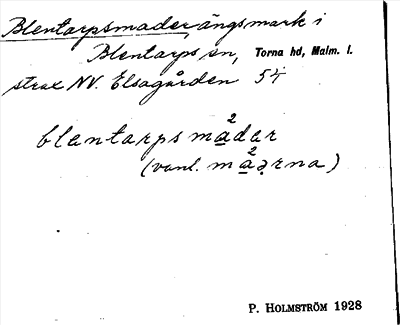 Blentarpsmader, ängsmark i
Blentarps sn, Torna hd, Malm. l.
strax NV. Elsagården 54
2
blantarpsmådar
2
(vanl. måərna)
P. HOLMSTRÖM 1928